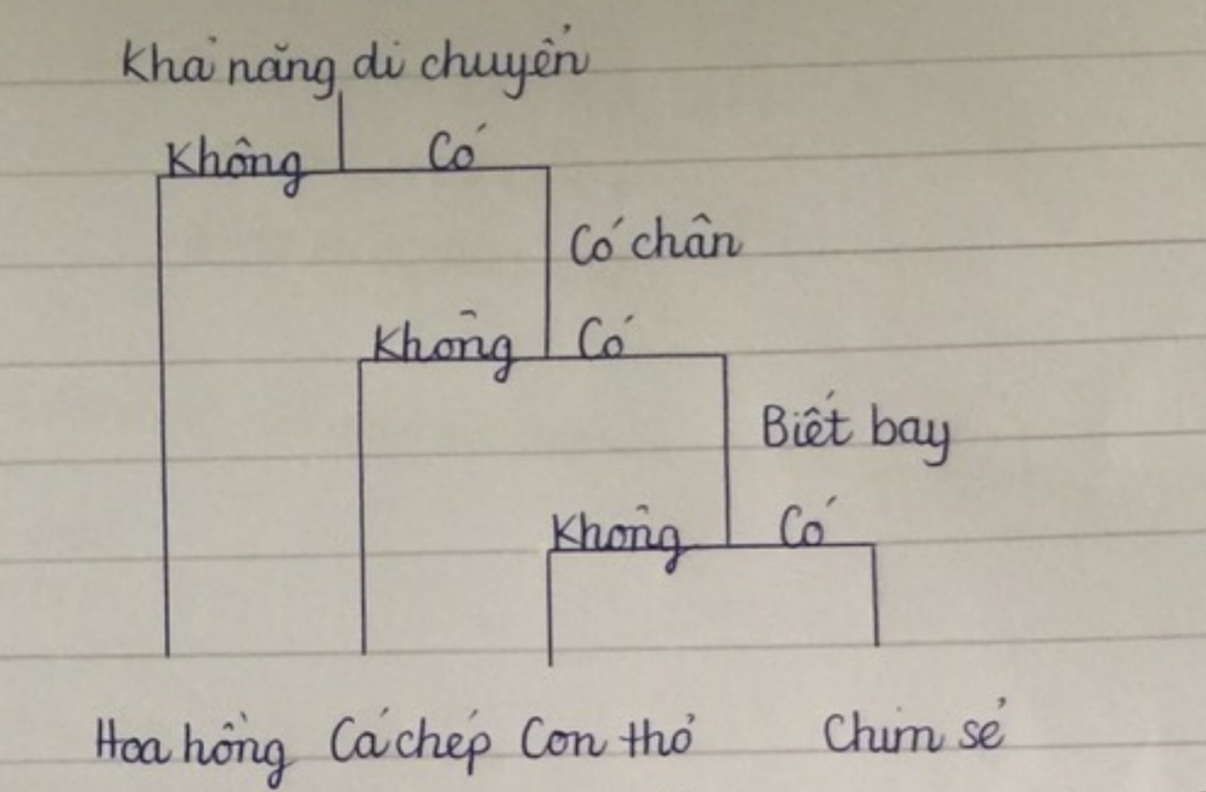 Khả năng di chuyển
Không Có
Có chân
Không Có
Biết bay
Không Có
Hoa hồng Cá chép Con thỏ Chim sẻ